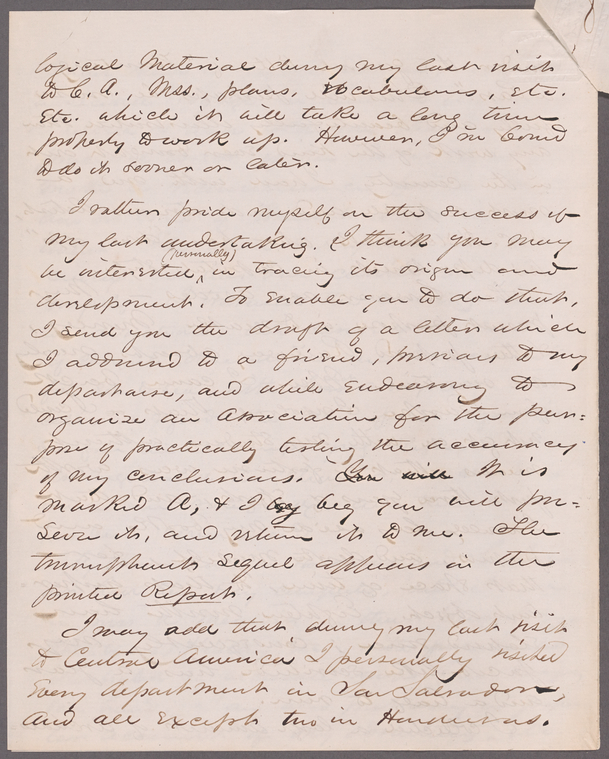 logical Material during my last visit
to C. A., Mss., plans, vocabularies, etc.
etc. which it will take a long time
properly to work up. However, I'm bound
to do it sooner or later.
I rather pride myself on the success of
my last undertaking. I think you may
(personally)
be interested, in tracing its origin and
development. To enable you to do that,
I send you the draft of a letter which
I addressed to a friend, previous to my
departure, and while endeavoring to
organize an Association for the pur=
pose of practically testing the accuracy
of my conclusions. You will It is
marked A, & I beg beg you will pre=
serve it, and return it to me. The
triumphant sequel appears in the
printed Report.
I may add that during my last visit
to Central America I personally visited
every department in San Salvador,
and all except two in Honduras.